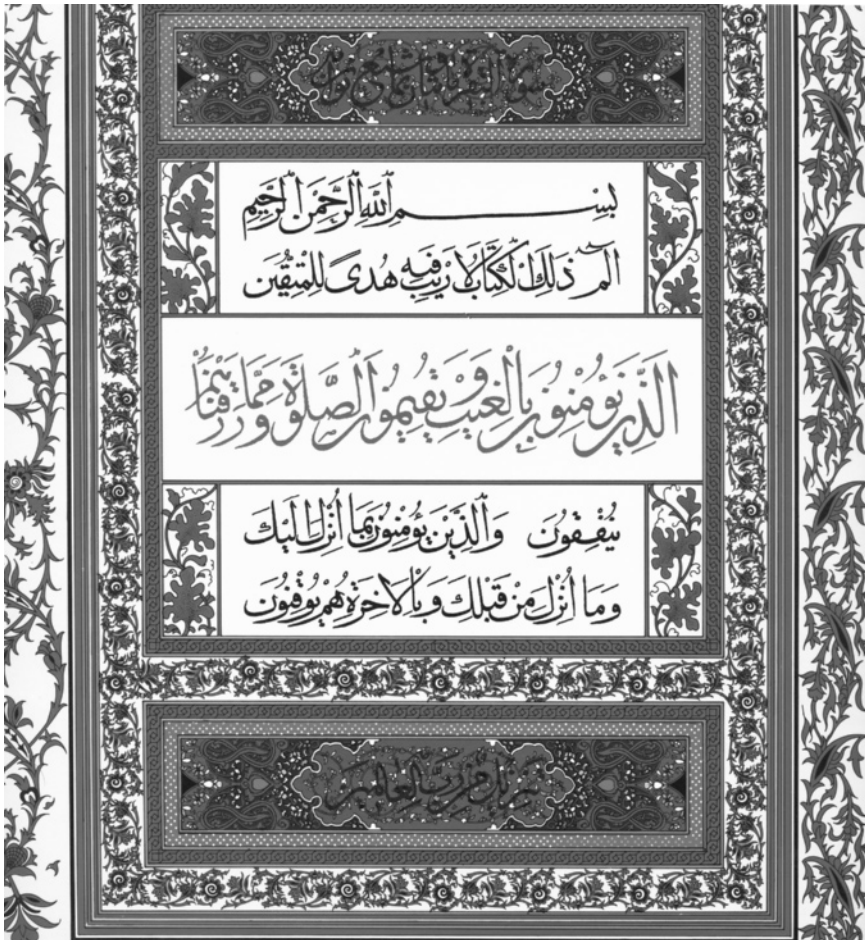 سورة البقرة مائتان وثمانون
بِسْمِ ٱللَّهِ ٱلرَّحْمَنِ ٱلرَّحِيمِ
الم ذَلِكَ ٱلْكِتَابُ لَا رَيْبَ فِيهِ هُدًى لِلْمُتَّقِينَ
الَّذِينَ يُؤْمِنُونَ بِالْغَيْبِ وَيُقِيمُونَ ٱلصَّلَوٰةَ وَمِمَّا رَزَقْنَاهُمْ
يُنْفِقُونَ وَٱلَّذِينَ يُؤْمِنُونَ بِمَا أُنْزِلَ إِلَيْكَ
وَمَا أُنْزِلَ مِنْ قَبْلِكَ وَبِالْآخِرَةِ هُمْ يُوقِنُونَ
تنزيل من رب العالمين